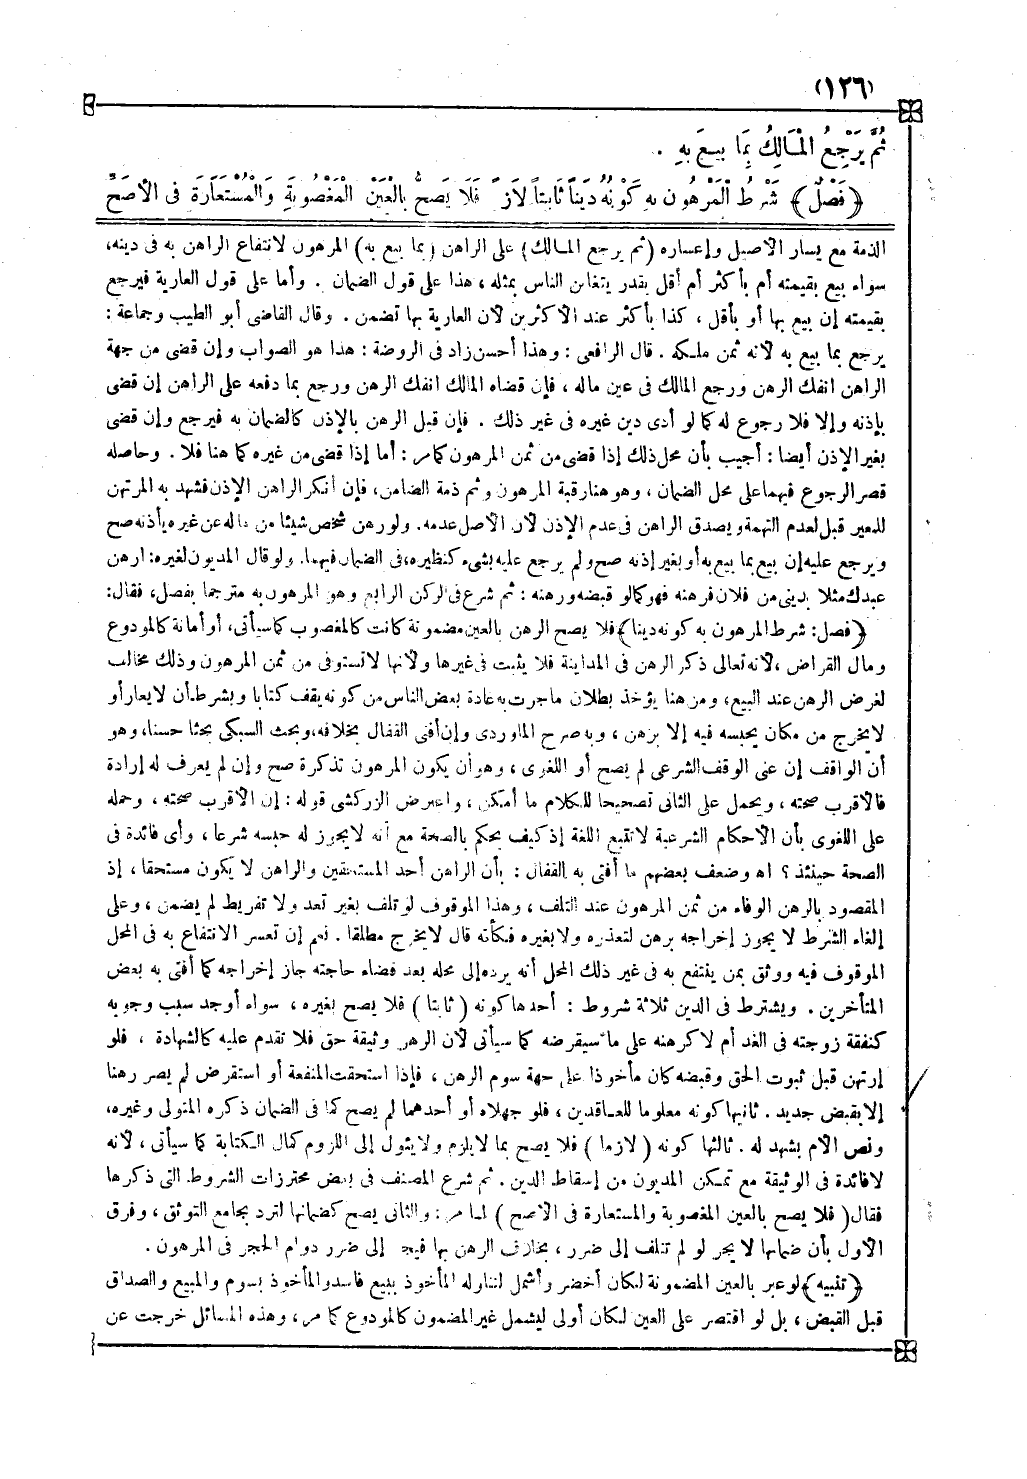 (١٢٦)
ثُمَّ يَرْجِعُ الْمَالِكُ بِمَا بِيعَ بِهِ .
﴿ فَصْلٌ ﴾ شَرْطُ الْمَرْهُونِ بِهِ كَوْنُهُ دَيْنًا ثَابِتًا لَازِمًا فَلَا يَصِحُّ بِالْعَيْنِ الْمَغْصُوبَةِ وَالْمُسْتَعَارَةِ فِى الْأَصَحِّ
الذمة مع يسار الأصيل وإعساره (ثم يرجع المالك) على الراهن (بما بيع به) المرهون لانتفاع الراهن به فى دينه،
سواء بيع بقيمته أم بأكثر أم أقل بقدر يتغابن الناس بمثله ، هذا على قول الضمان . وأما على قول العارية فيرجع
بقيمته إن بيع بها أو بأقل ، كذا بأكثر عند الأكثرين لأن العارية بها تضمن . وقال القاضى أبو الطيب وجماعة :
يرجع بما بيع به لأنه ثمن ملكه . قال الرافعى : وهذا أحسن زاد فى الروضة : هذا هو الصواب وإن قضى من جهة
الراهن انفك الرهن ورجع المالك فى عين ماله ، فإن قضاه المالك انفك الرهن ورجع بما دفعه على الراهن إن قضى
بإذنه وإلا فلا رجوع له كما لو أدى دين غيره فى غير ذلك . فإن قيل الرهن بالإذن كالضمان به فيرجع وإن قضى
بغير الإذن أيضا : أجيب بأن محل ذلك إذا قضى من ثمن المرهون كما مر : أما إذا قضى من غيره كما هنا فلا . وحاصله
قصر الرجوع فيهما على محل الضمان ، وهو هنا رقبة المرهون وثم ذمة الضامن، فإن أنكر الراهن الإذن فشهد به المرتهن
للمعير قبل لعدم التهمة ويصدق الراهن فى عدم الإذن لأن الأصل عدمه. ولو رهن شخص شيئا من ماله عن غيره بإذنه صح
ويرجع عليه إن بيع بما بيع به أو بغير إذنه صح ولم يرجع عليه بشىء كنظيره، فى الضمان فيهما. ولو قال المديون لغيره: ارهن
عبدك مثلا بدينى من فلان فرهنه فهو كما لو قبضه ورهنه : ثم شرع فى الركن الرابع وهو المرهون به مترجما بفصل، فقال:
﴿ فصل: شرط المرهون به كونه دينا﴾ فلا يصح الرهن بالعين مضمونة كانت كالمغصوب كما سيأتى، أو أمانة كالمودوع
ومال القراض ،لأنه تعالى ذكر الرهن فى المداينة فلا يثبت فى غيرها ولأنها لا تستوفى من ثمن المرهون وذلك مخالف
لغرض الرهن عند البيع، ومن هنا يؤخذ بطلان ما جرت به عادة بعض الناس من كونه يقف كتابا ويشرط أن لا يعار أو
لا يخرج من مكان يحبسه فيه إلا برهن ، وبه صرح الماوردى وإن أفتى القفال بخلافه، وبحث السبكى بحثا حسنا، وهو
أن الواقف إن عنى الوقف الشرعى لم يصح أو اللغوى ، وهو أن يكون المرهون تذكرة صح وإن لم يعرف له إرادة
فالأقرب صحته ، ويحمل على الثانى تصحيحا للكلام ما أمكن ، واعترض الزركشى قوله : إن الأقرب صحته ، وحمله
على اللغوى بأن الأحكام الشرعية لا تتبع اللغة إذ كيف يحكم بالصحة مع أنه لا يجوز له حبسه شرعا ، وأى فائدة فى
الصحة حينئذ ؟ اه وضعف بعضهم ما أفتى به القفال : بأن الراهن أحد المستحقين والراهن لا يكون مستحقا ، إذ
المقصود بالرهن الوفاء من ثمن المرهون عند التلف ، وهذا الموقوف لو تلف بغير تعد ولا تفريط لم يضمن ، وعلى
إلغاء الشرط لا يجوز إخراجه برهن لتعذره ولا بغيره فكأنه قال لا يخرج مطلقا . نعم إن تعسر الانتفاع به فى المحل
الموقوف فيه ووثق بمن ينتفع به فى غير ذلك المحل أنه يرده إلى محله بعد قضاء حاجته جاز إخراجه كما أفتى به بعض
المتأخرين . ويشترط فى الدين ثلاثة شروط : أحدها كونه ( ثابتا ) فلا يصح بغيره ، سواء أوجد سبب وجوبه
كنفقة زوجته فى الغد أم لا كرهنه على ما سيقرضه كما سيأتى لأن الرهن وثيقة حق فلا تقدم عليه كالشهادة ، فلو
ارتهن قبل ثبوت الحق وقبضه كان مأخوذا على جهة سوم الرهن ، فإذا استحقت المنفعة أو استقرض لم يصر رهنا
إلا بقبض جديد . ثانيها كونه معلوما للعاقدين ، فلو جهلاه أو أحدهما لم يصح كما فى الضمان ذكره المتولى وغيره،
ونص الأم يشهد له . ثالثها كونه ( لازما ) فلا يصح بما لا يلزم ولا يئول إلى اللزوم كمال الكتابة كما سيأتى ، لأنه
لا فائدة فى الوثيقة مع تمكن المديون من إسقاط الدين . ثم شرع المصنف فى بعض محترزات الشروط التى ذكرها
فقال( فلا يصح بالعين المغصوبة والمستعارة فى الأصح ) لما مر : والثانى يصح كضمانها لترد بجامع التوثق ، وفرق
الأول بأن ضمانها لا يجر لو لم تتلف إلى ضرر ، بخلاف الرهن بها فيجر إلى ضرر دوام الحجر فى المرهون .
﴿ تنبيه ﴾ لو عبر بالعين المضمونة لكان أخضر وأشمل لتناوله المأخوذ ببيع فاسد والمأخوذ بسوم والمبيع والصداق
قبل القبض ، بل لو اقتصر على العين لكان أولى ليشمل غير المضمون كالمودوع كما مر ، وهذه المسائل خرجت عن